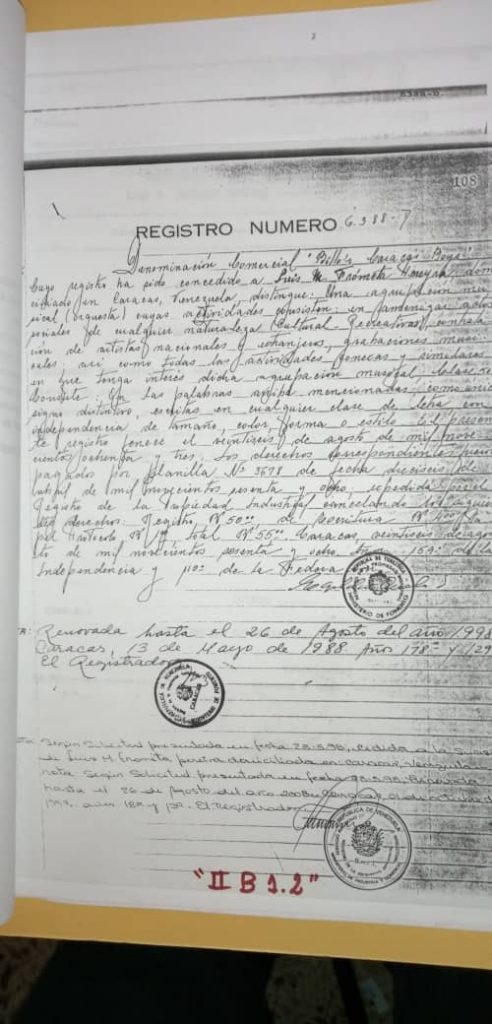 2
6388-D
108
REGISTRO NUMERO 6.388-D
Denominación Comercial "Billo's Caracas Boys"
Cuyo registro ha sido concedido a Luis M. Frómeta Pereyra, domi
ciliado en Caracas, Venezuela, distingue: Una agrupación mu
sical (orquesta) cuyas actividades consisten: en amenizar actos
sociales de cualquier naturaleza (Cultural Recreativos), contrata
ción de artistas nacionales y extranjeros, grabaciones musi
cales, así como todas las actividades conexas y similares
en que tenga interés dicha agrupación musical,
Consiste: En las palabras arriba mencionadas, como único
signo distintivo, escritas en cualquier clase de letra con
independencia de tamaño, color, forma o estilo. El presen
te registro fenece el veintiseis de agosto de mil nove
cientos ochenta y tres. Los derechos correspondientes fueron
pagados por Planilla Nº 3678 de fecha dieciseis de
de mil novecientos sesenta y ocho, expedida por el
Registro de la Propiedad Industrial, cancelando los siguien
tes derechos: Registro, Bs 50.00 de escritura Bs 4.00
pel Protocolo Bs total Bs 55.00 Caracas, veintiseis de agos
to de mil novecientos sesenta y ocho. Años 159º de la
Independencia y 110º de la Federa
REPUBLICA DE VENEZUELA
MINISTERIO DE FOMENTO
Renovada hasta el 26 de Agosto del año 1998
Caracas, 13 de Mayo de 1988 Años 178º y 129
El Registrador
CARACAS
Según Solicitud presentada en fecha 28.5.96, cedida a la
de Luis M. Frometa pereira domiciliada en Caracas, Venezuela
nota Según Solicitud presentada en fecha
hasta el 26 de Agosto del año 2008
El Registrador
REPUBLICA DE VENEZUELA
"II B 1.2"